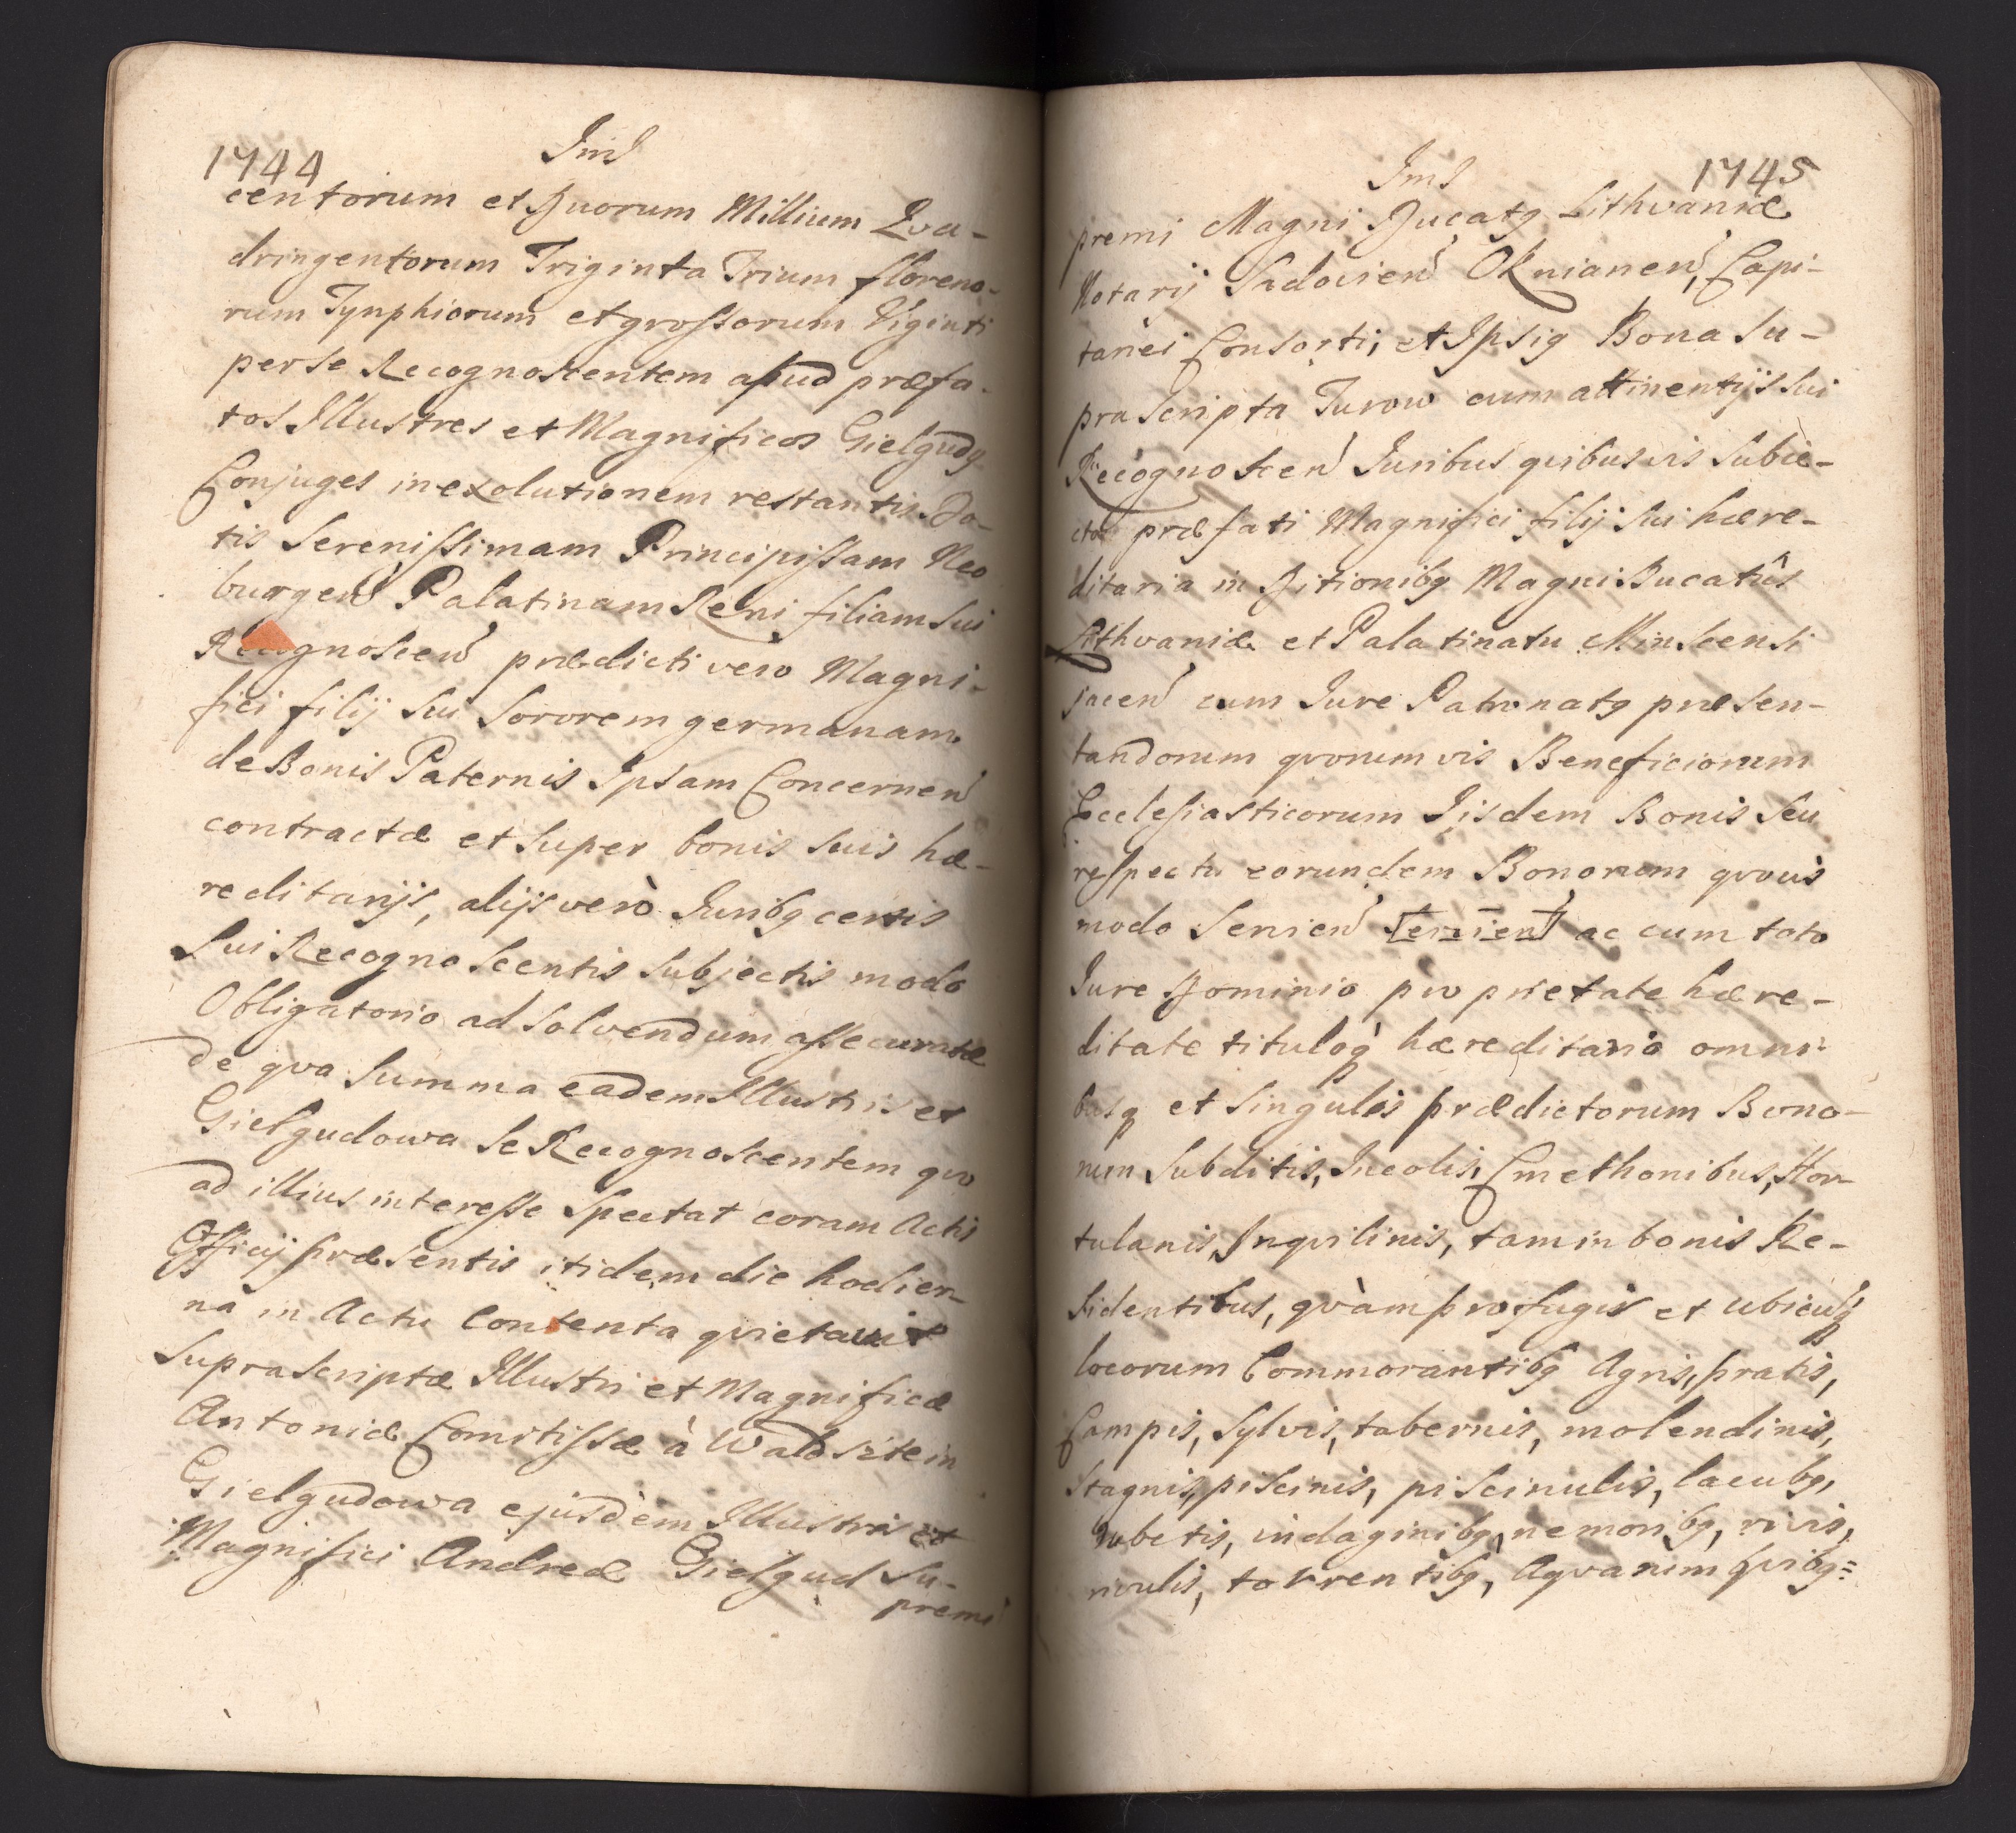 1744
Jms
centorum et Duorum Millium Qva-
dringentorum Triginta Trium floreno-
rum Tynphiorum et grossorum Viginti
per se Recognoscentem apud præfa-
tos Illustres et Magnificos Gielgudꝯ
Conjuges in exolutionem restantis Do-
tis Serenissimam Principissam Neo
burgen Palatinam Reni filiam sui
Recognoscen prædicti vero Magni-
fici filij sui Sororem germanam
de Bonis Paternis Ipsam Concernen
contractæ et super bonis suis hæ-
reditarijs, alijs verò Juribꝯ certis
sui Recognoscentis subjectis modo
Obligatorio ad solvendum assecuratæ
de qva Summa eadem Illustris et
Gielgudowa se Recognoscentem qvo
ad illius interesse Spectat coram Actis
Officij præsentis itidem die hodier-
nà in Actu Contenta qvietavit
supra scriptæ Illustri et Magnificæ
Antoniæ Comitissæ à Waldsztein
Gielgudowa ejusdem Illustris et
Magnifici Andreæ Gielgud Su-
premi
1745
Jms
premi Magni Ducatꝯ Lithvaniæ
Notarij Sadovien Oknianen, Capi-
tanei Consorti, et Ipsiꝯ Bona su-
pra scripta Turow cum attinentijs sui
Recognoscen Juribus qvibusvis subie-
cta præfati Magnifici filij sui hære-
ditaria in Ditionibꝯ Magni Ducatûs
Lithvaniæ et Palatinatu Minscensi
jacen cum Jure Patronatꝯ præsen-
tandorum qvorumvis Beneficiorum
Ecclesiasticorum Iisdem Bonis seu
respectu eorundem Bonorum qvovis
modo Servien [servien] ac cum toto
Jure Dominio proprietate hære-
ditate tituloq̀ hæreditario omni-
busq et singulis prædictorum Bono-
rum Subditis, Incolis, Cmethonibus, Hor-
tulanis, Inqvilinis, tam in bonis Re-
sidentibus, qvàm profugis et ubicusq
locorum Commorantibꝯ Agris, pratis,
Campis, Sylvis, tabernis, molendinis,
Stagnis, piscinis, piscinulis, lacubꝯ,
rubetis, indaginibꝯ, nemoribꝯ, rivis,
rivulis, torrentibꝯ, Aqvarum qvibꝯ=